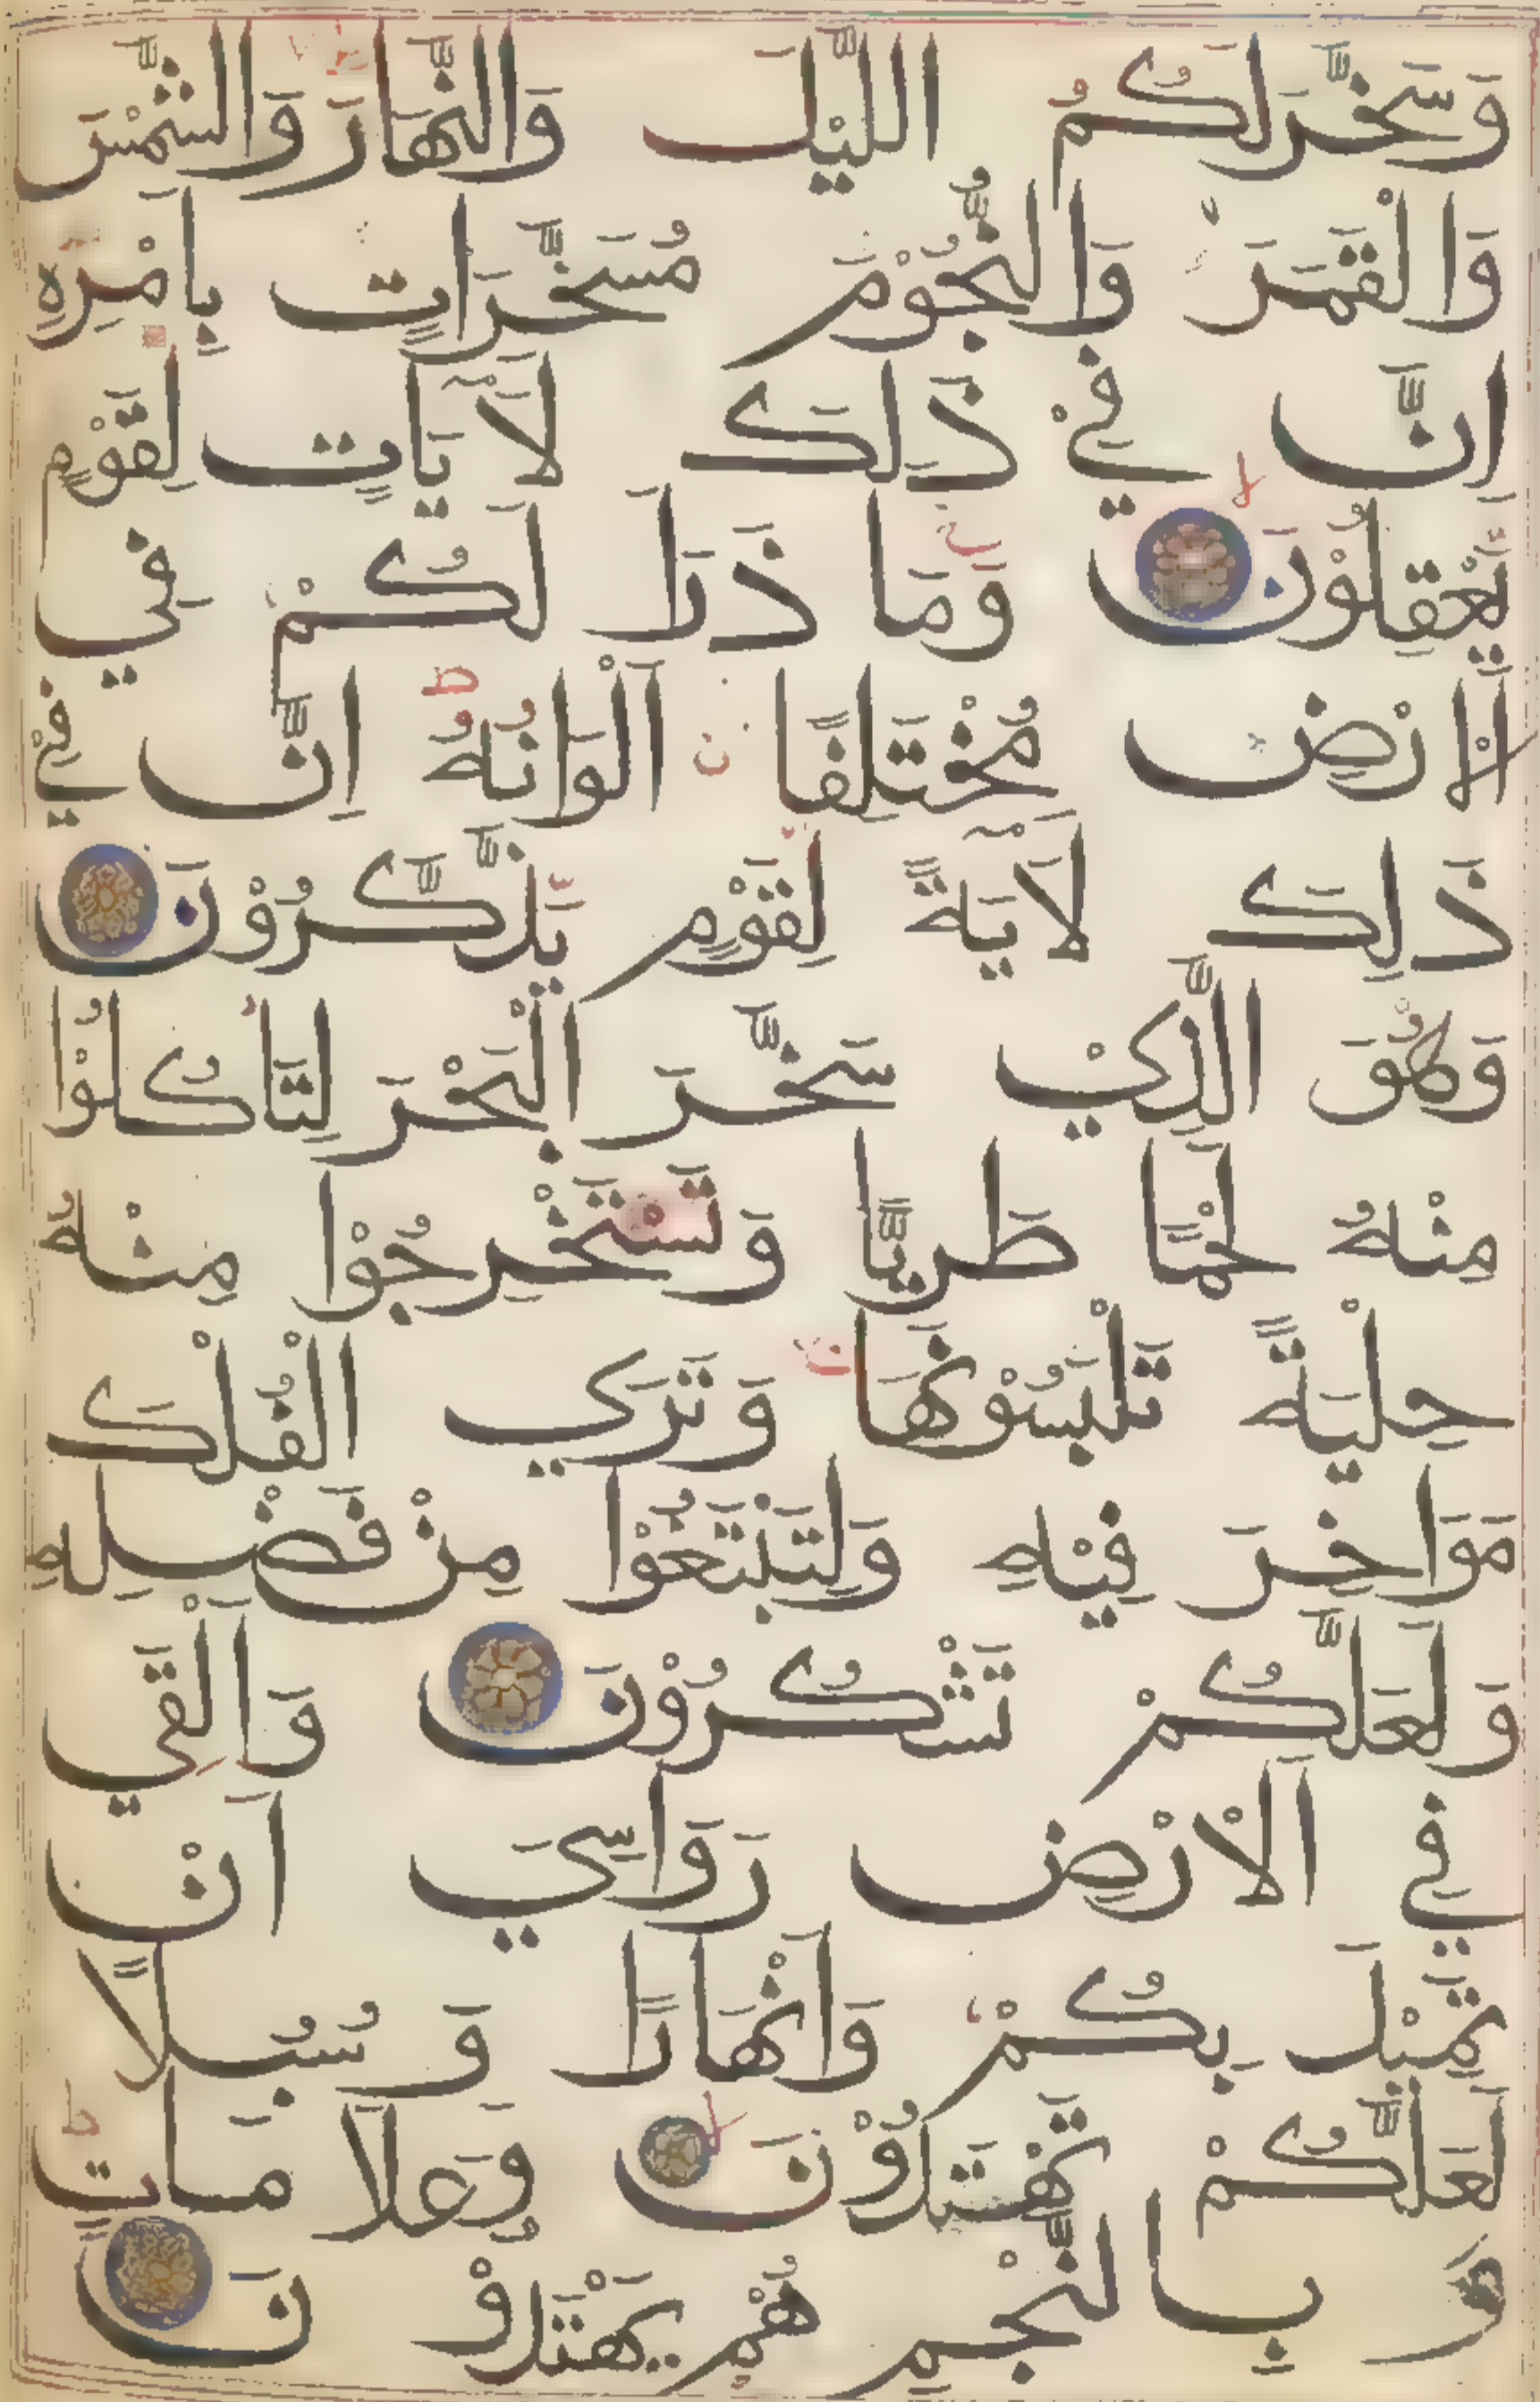 وَسَخَّرَ لَكُمُ اللَّيْلَ وَالنَّهَارَ وَالشَّمْسَ
وَالْقَمَرَ وَالنُّجُوْمَ مُسَخَّرَاتٍ بِاَمْرِهٖ
اِنَّ فِيْ ذَالِكَ لَاٰيَاتٍ لِقَوْمٍ
يَعْقِلُوْنَ وَمَا ذَرَاَ لَكُمْ فِي
الْاَرْضِ مُخْتَلِفًا اَلْوَانُهُ اِنَّ فِيْ
ذَالِكَ لَاٰيَةً لِقَوْمٍ يَذَّكَّرُوْنَ
وَهُوَ الَّذِيْ سَخَّرَ الْبَحْرَ لِتَاْكُلُوْا
مِنْهُ لَحْمًا طَرِيًّا وَتَسْتَخْرِجُوْا مِنْهُ
حِلْيَةً تَلْبَسُوْنَهَا وَتَرَي الْفُلْكَ
مَوَاخِرَ فِيْهِ وَلِتَبْتَغُوْا مِنْ فَضْلِهِ
وَلَعَلَّكُمْ تَشْكُرُوْنَ وَاَلْقٰي
فِي الْاَرْضِ رَوَاسِيَ اَنْ
تَمِيْدَ بِكُمْ وَاَنْهَارًا وَسُبُلًا
لَعَلَّكُمْ تَهْتَدُوْنَ وَعَلَامَاتٍ
وَ بِالنَّجْمِ هُمْ يَهْتَدُوْنَ